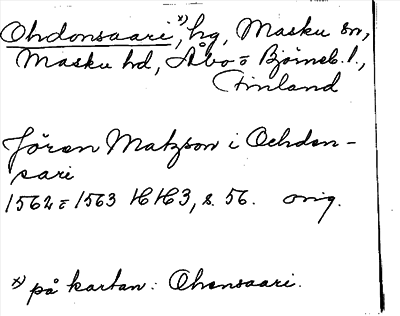 Ohdonsaari, x) hg, Masku sn,
Masku hd, Åbo = Björneb. l.,
Finland
Jören Matzson i Ochdon-
sari
1562 = 1563 HH3, s. 56. orig.
x) på kartan: Ohensaari.